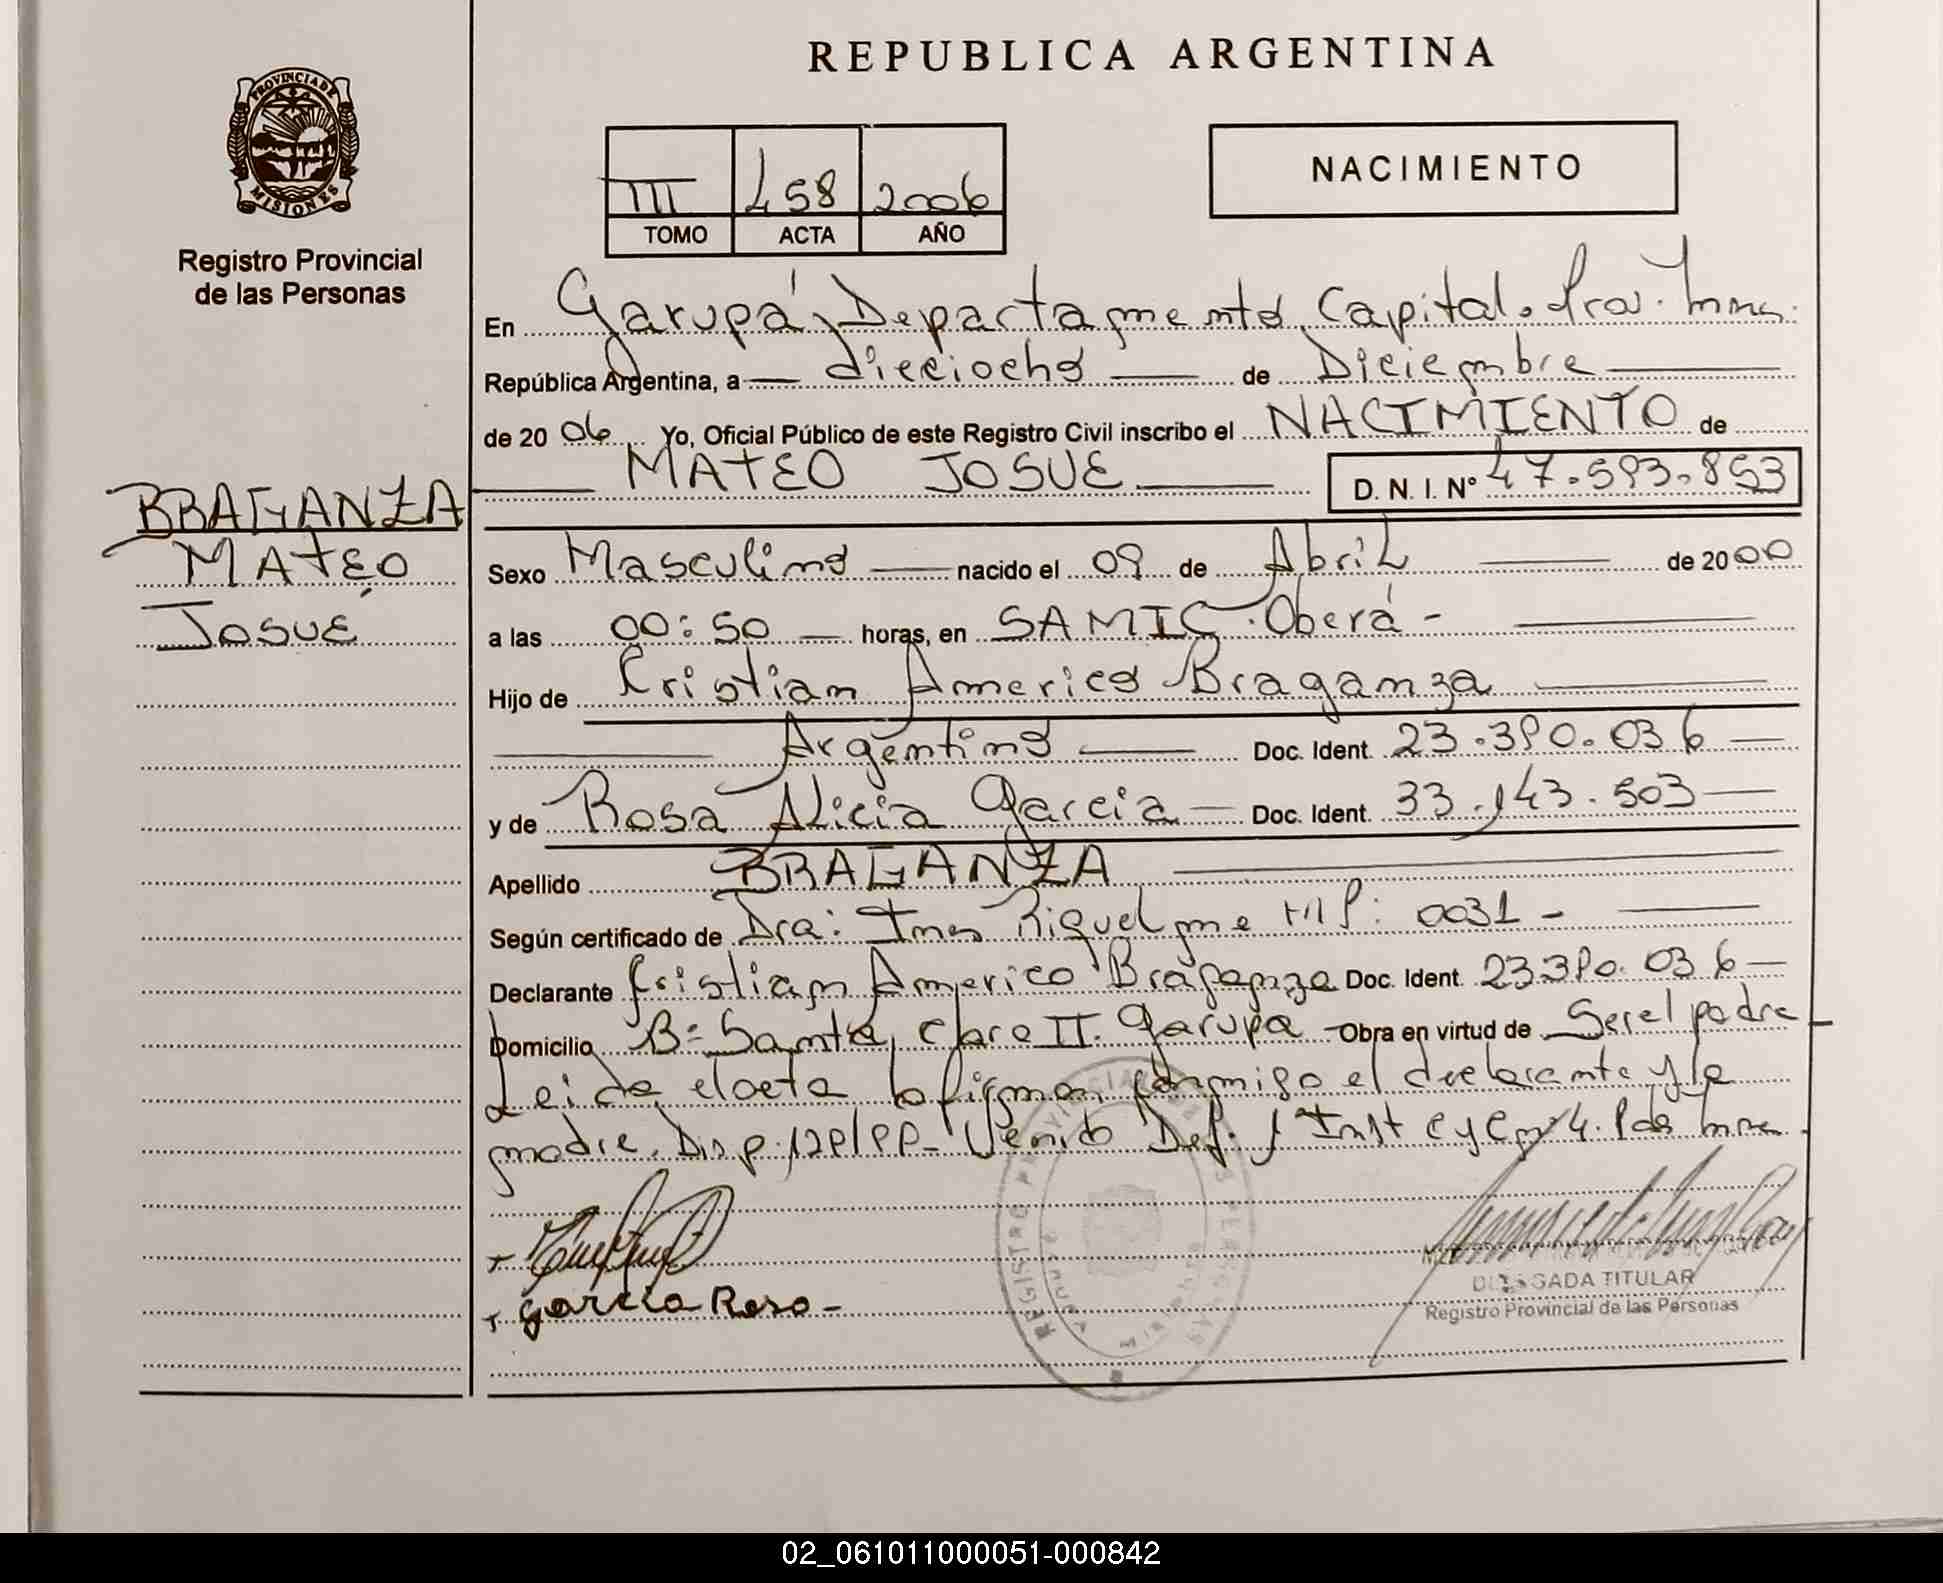 REPUBLICA ARGENTINA
PROVINCIA DE
MISIONES
Registro Provincial
de las Personas
III 458 2006
TOMO ACTA AÑO
NACIMIENTO
En Garupá, Departamento Capital. Prov. Mnes.
República Argentina, a dieciocho de Diciembre
de 2006 Yo, Oficial Público de este Registro Civil inscribo el NACIMIENTO de
MATEO JOSUE D. N. I. Nº 47.593.853
BRAGANZA
MATEO
JOSUÉ
Sexo Masculino nacido el 09 de Abril de 2000
a las 00:50 horas, en SAMIC. Oberá -
Hijo de Cristian Americo Braganza
Argentino Doc. Ident. 23.390.036
y de Rosa Alicia Garcia Doc. Ident. 33.143.503
Apellido BRAGANZA
Según certificado de Dra: Ines Riquelme MP: 0031 -
Declarante Cristian Americo Braganza Doc. Ident. 23390.036
Domicilio Bº Santa Clara II. Garupa - Obra en virtud de Ser el padre
Leida el acta la firman conmigo el declarante y la
madre. Disp.
Garcia Rosa -
DELEGADA TITULAR
Registro Provincial de las Personas
02_061011000051-000842